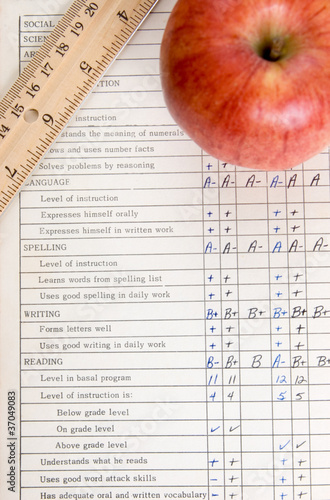 SOCIAL
SCIEN
AR
instruction
stands the meaning of numerals
ows and uses number facts
Solves problems by reasoning + +
LANGUAGE A- A- A- A- A A
Level of instruction
Expresses himself orally + + + +
Expresses himself in written work + + + +
SPELLING A- A- A- A A- A-
Level of instruction
Learns words from spelling list + + + +
Uses good spelling in daily work + + + +
WRITING B+ B+ B+ B+ B+ B+
Forms letters well + + + +
Uses good writing in daily work + + + +
READING B- B+ B A- B+ B+
Level in basal program 11 11 12 12
Level of instruction is: 4 4 5 5
Below grade level
On grade level ✓ ✓
Above grade level ✓ ✓
Understands what he reads + + + +
Uses good word attack skills - + + +
Has adequate oral and written vocabulary - + + +
14 15 16 17 18 19 20
7 6 5 4
Adobe Stock | #37049083